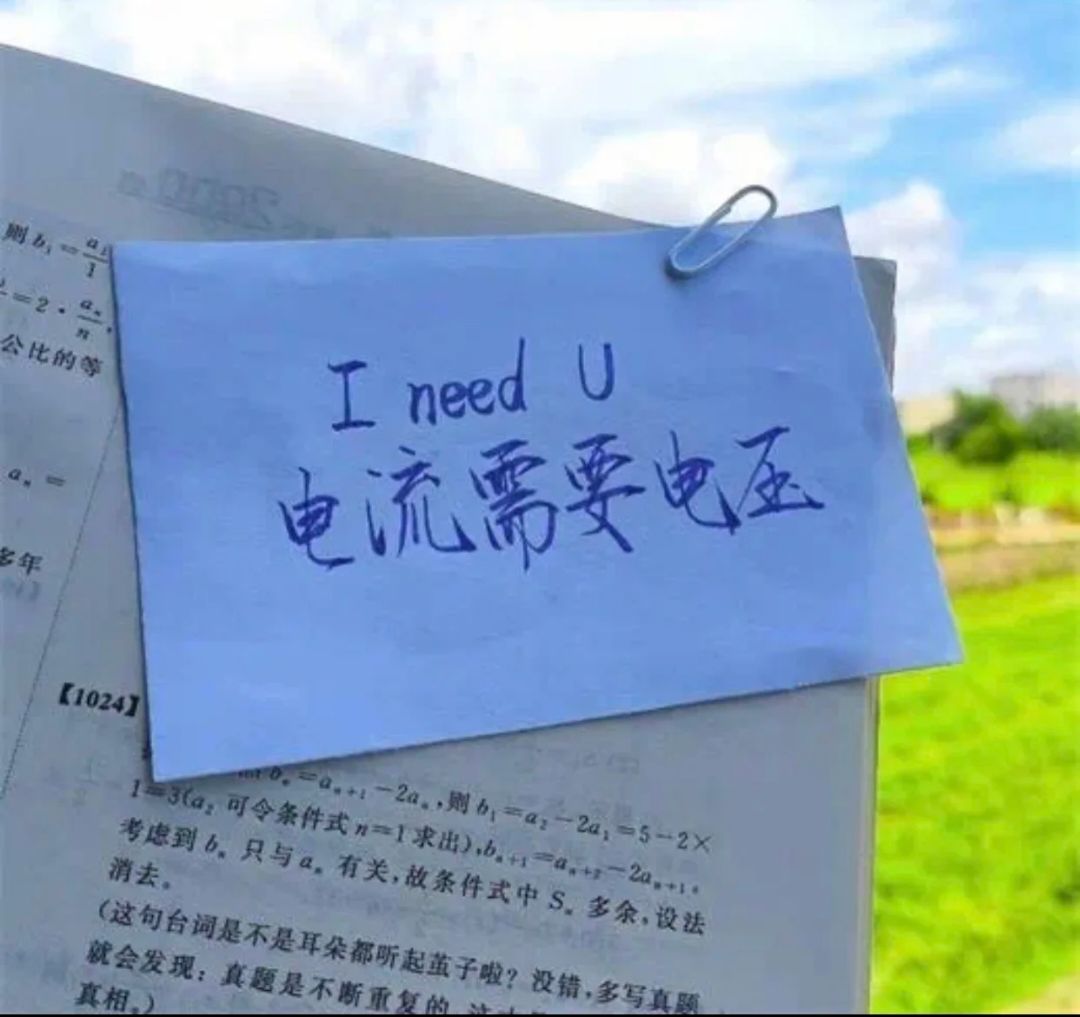 则 b₁=a₁/1
=2·aₙ/n,
公比的等
aₙ=
多年
I need U
电流需要电压
【1024】
bₙ=aₙ₊₁-2aₙ,则 b₁=a₂-2a₁=5-2×
1=3(a₂ 可令条件式 n=1 求出),bₙ₊₁=aₙ₊₂-2aₙ₊₁。
考虑到 bₙ 只与 aₙ 有关,故条件式中 Sₙ 多余,设法
消去。
(这句台词是不是耳朵都听起茧子啦?没错,多写真题
就会发现:真题是不断重复的
真相。)